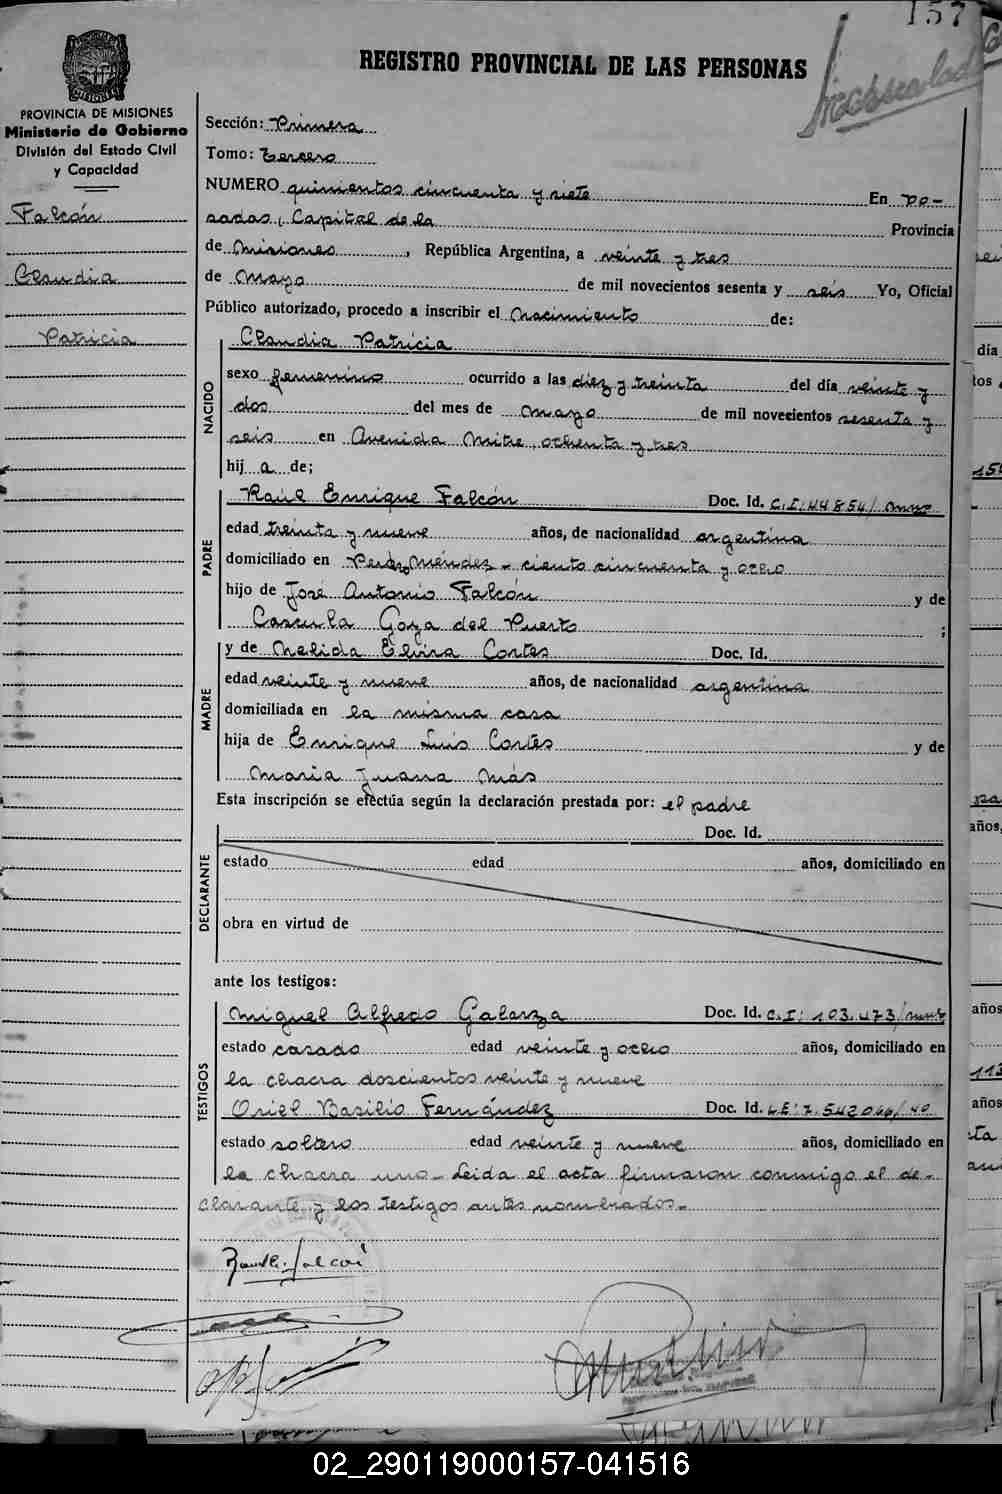 157
REGISTRO PROVINCIAL DE LAS PERSONAS
PROVINCIA DE MISIONES
Ministerio de Gobierno
División del Estado Civil
y Capacidad
Falcón
Claudia
Patricia
Sección: Primera
Tomo: tercero
NUMERO quinientos cincuenta y siete En Po-
sadas, Capital de la Provincia
de Misiones, República Argentina, a veinte y tres
de mayo de mil novecientos sesenta y seis Yo, Oficial
Público autorizado, procedo a inscribir el nacimiento de:
NACIDO
Claudia Patricia
sexo femenino ocurrido a las diez y treinta del día veinte y
dos del mes de mayo de mil novecientos sesenta y
seis en Avenida Mitre, ochenta y tres
hij a de;
PADRE
Raúl Enrique Falcón Doc. Id. C.I:44854/
edad treinta y nueve años, de nacionalidad argentina
domiciliado en Méndez - ciento cincuenta y ocho
hijo de José Antonio Falcón y de
Goya del Puerto ;
MADRE
y de Nelida Elvira Cortes Doc. Id.
edad veinte y nueve años, de nacionalidad argentina
domiciliada en la misma casa
hija de Enrique Luis Cortes y de
Maria Juana Más
Esta inscripción se efectúa según la declaración prestada por: el padre
DECLARANTE
Doc. Id.
estado edad años, domiciliado en
obra en virtud de
ante los testigos:
TESTIGOS
Miguel Alfredo Galarza Doc. Id. C.I: 103.473/
estado casado edad veinte y ocho años, domiciliado en
la chacra doscientos veinte y nueve
Oriel Basilio Fernández Doc. Id. L.E:7.542.046/40
estado soltero edad veinte y nueve años, domiciliado en
la chacra uno - Leida el acta firmaron conmigo el de-
clarante y los testigos antes nombrados.-
02_290119000157-041516